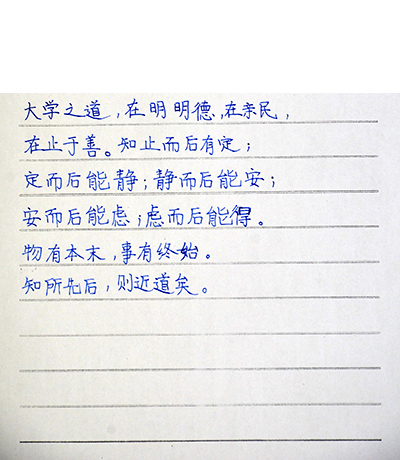 大学之道,在明明德,在亲民,
在止于善。知止而后有定;
定而后能静;静而后能安;
安而后能虑;虑而后能得。
物有本末,事有终始。
知所先后,则近道矣。